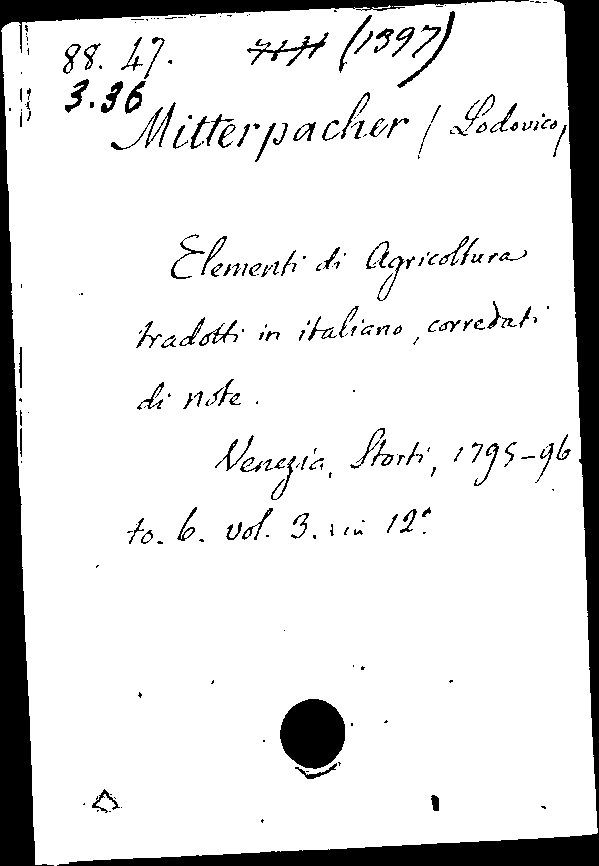 88. 47. (1397)
3.36
Mitterpacher / Lodovico,
Elementi di Agricoltura
tradotti in italiano, corredati
di note.
Venezia, Storti, 1795-96.
to. 6. vol. 3. in 12°.